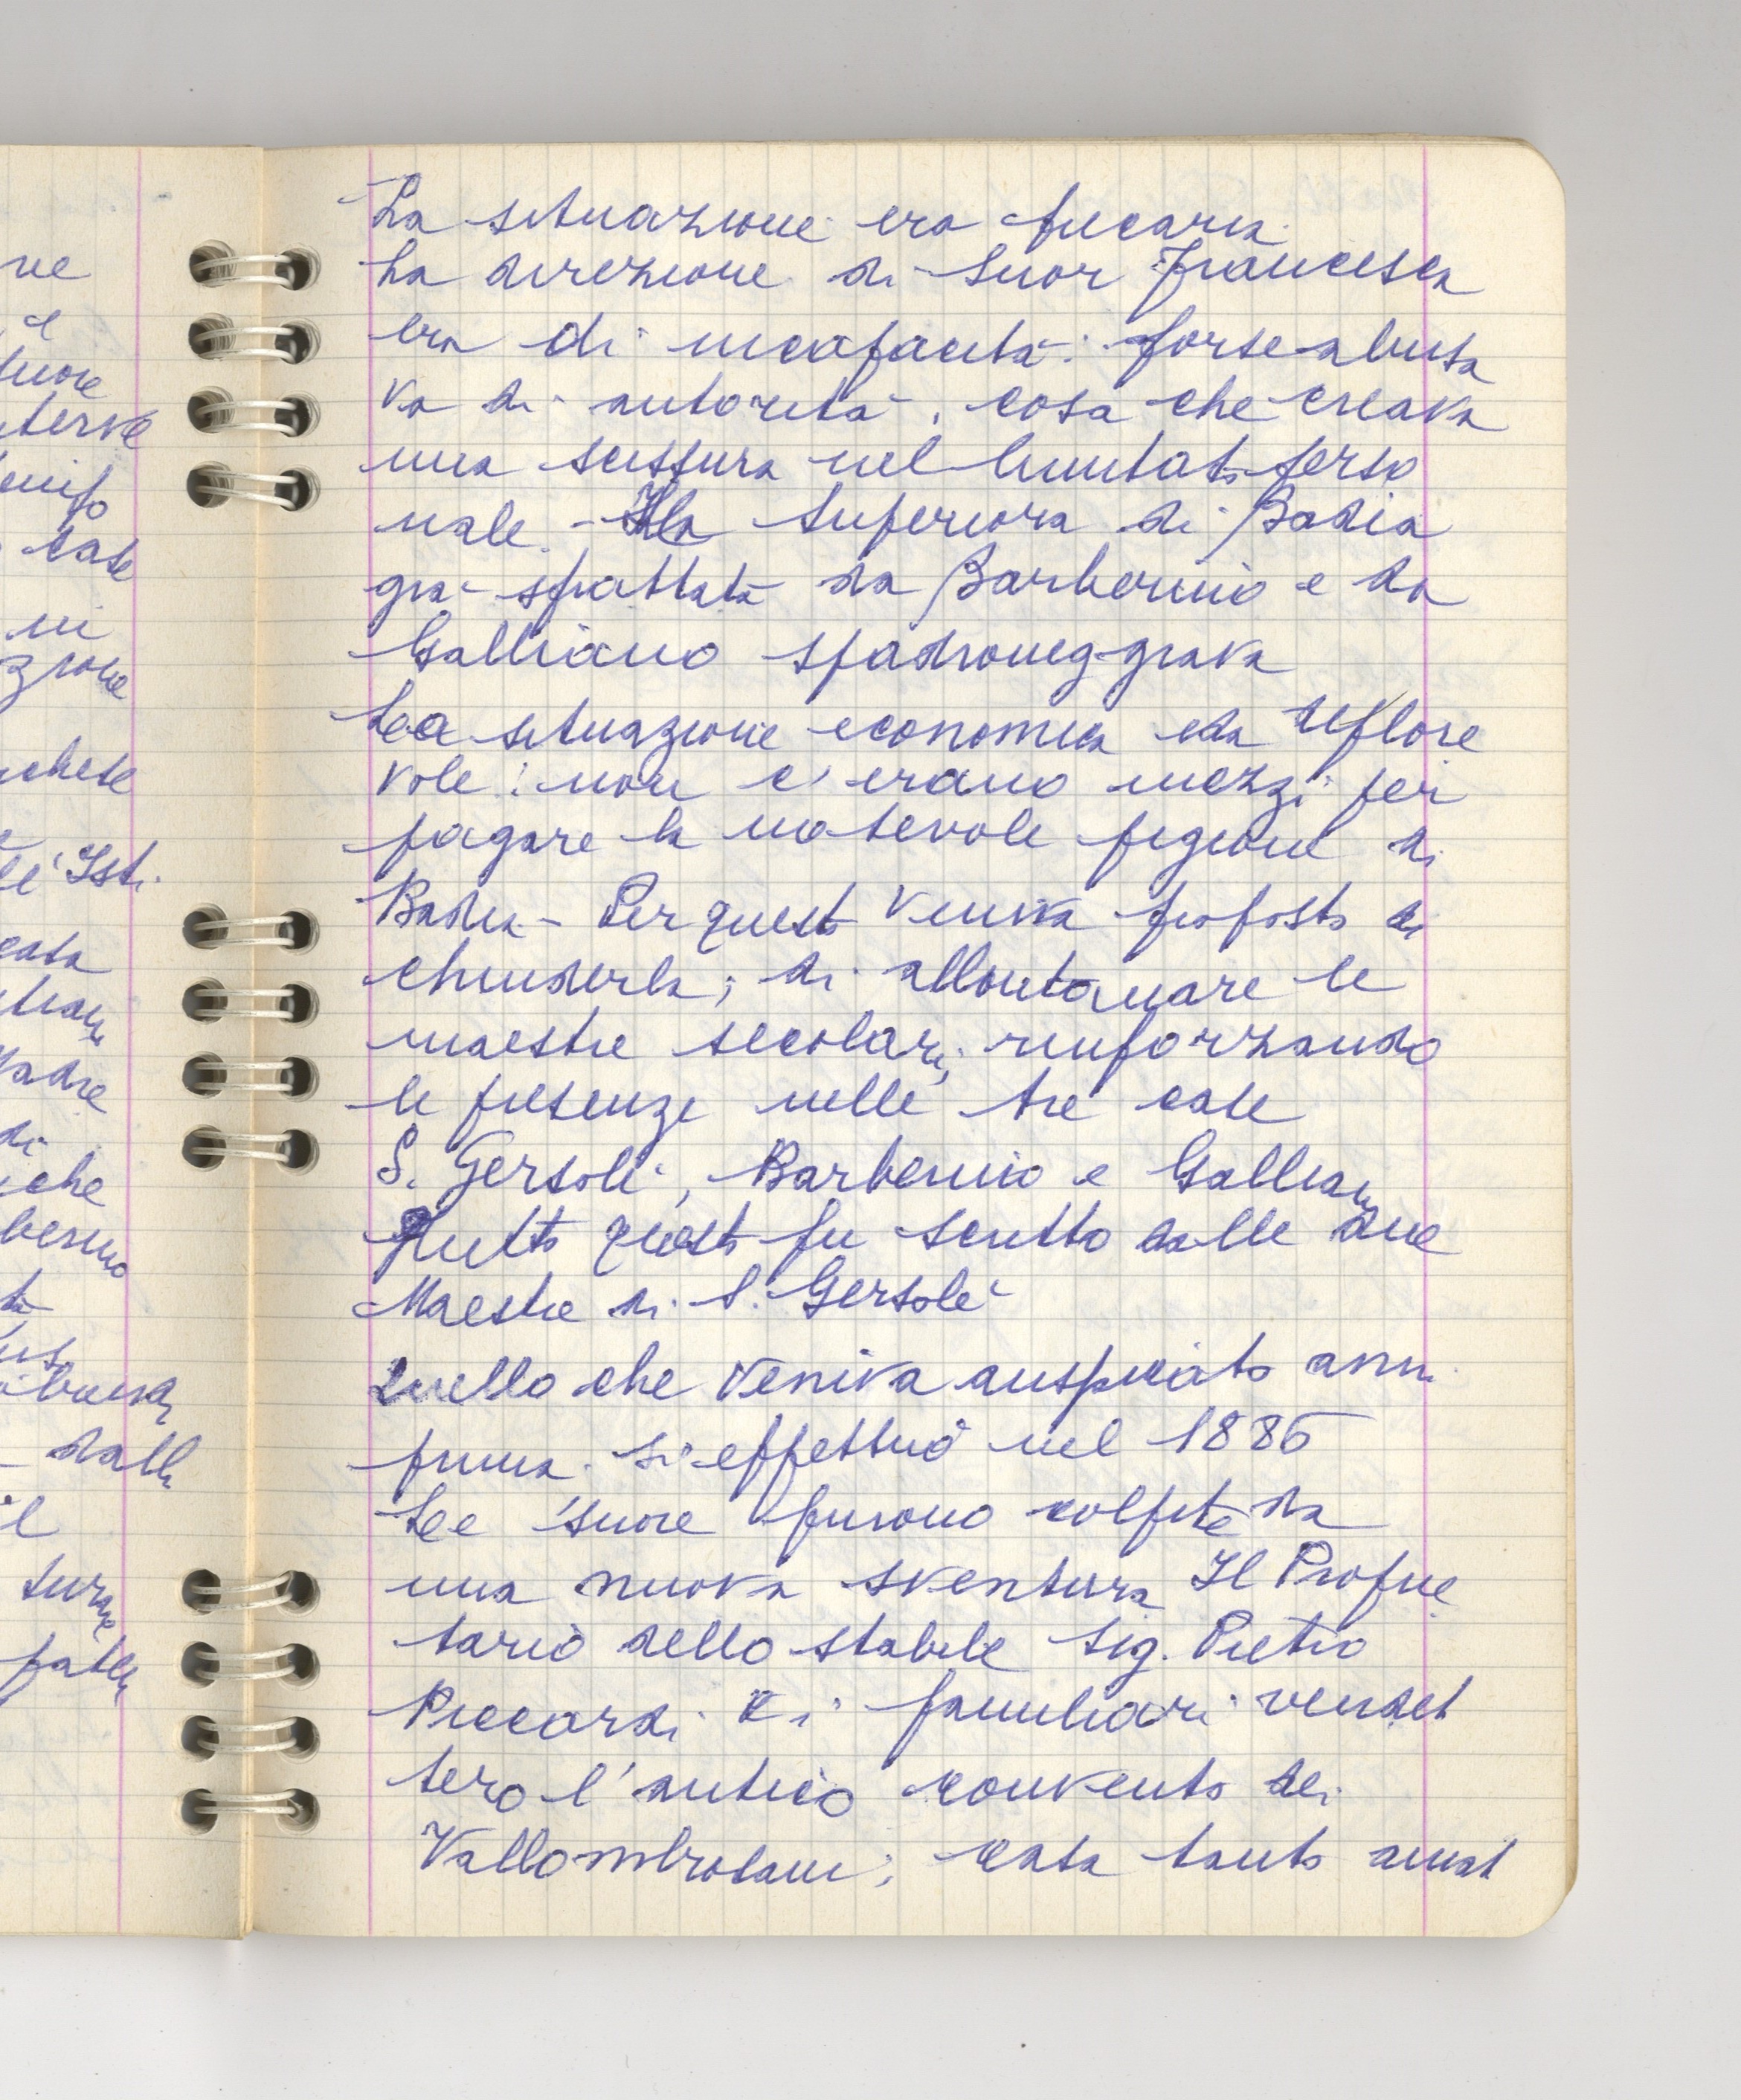 La situazione era precaria.
La direzione di Suor Francesca
era di incapacità: forse abusa
va di autorità, cosa che creava
una scissura nel limitato perso
nale. - La Superiora di Badia
già sfrattata da Barberino e da
Galliano spadroneggiava
La situazione economica era deplore
vole: non c'erano mezzi per
pagare la notevole pigione di
Badia - Per questo veniva proposto di
chiuderla; di allontanare le
maestre secolari, rinforzando
le presenze nelle tre case
S. Gersolè, Barberino e Galliano
Tutto questo fu scritto dalle due
Maestre di S. Gersolè
Quello che veniva auspicato anni
prima si effettuò nel 1886
Le suore furono colpite da
una nuova sventura Il Proprie
tario dello stabile Sig. Pietro
Piccardi e i familiari vendet
tero l'antico convento dei
Vallombrosani; casa tanto amat
ve
e
suore
case
ni
zione
l'Isti.
casa
Madre
di
che
dalle
il